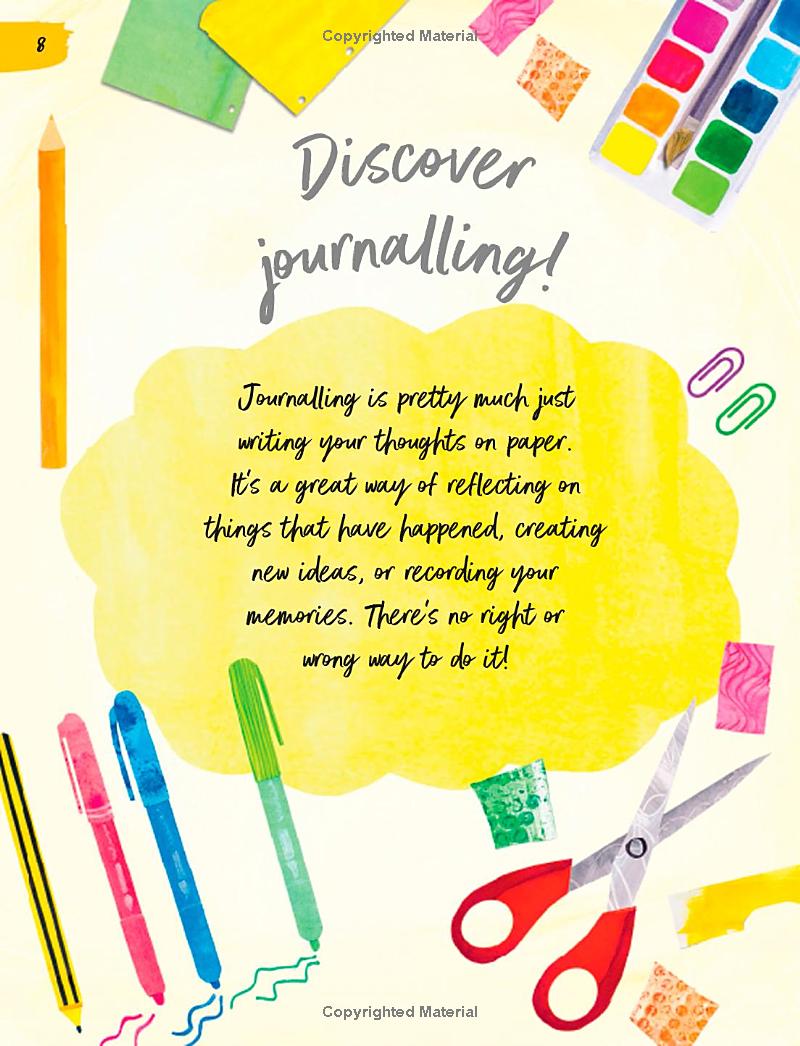 8
Copyrighted Material
Discover
journalling!
Journalling is pretty much just
writing your thoughts on paper.
It's a great way of reflecting on
things that have happened, creating
new ideas, or recording your
memories. There's no right or
wrong way to do it!
Copyrighted Material